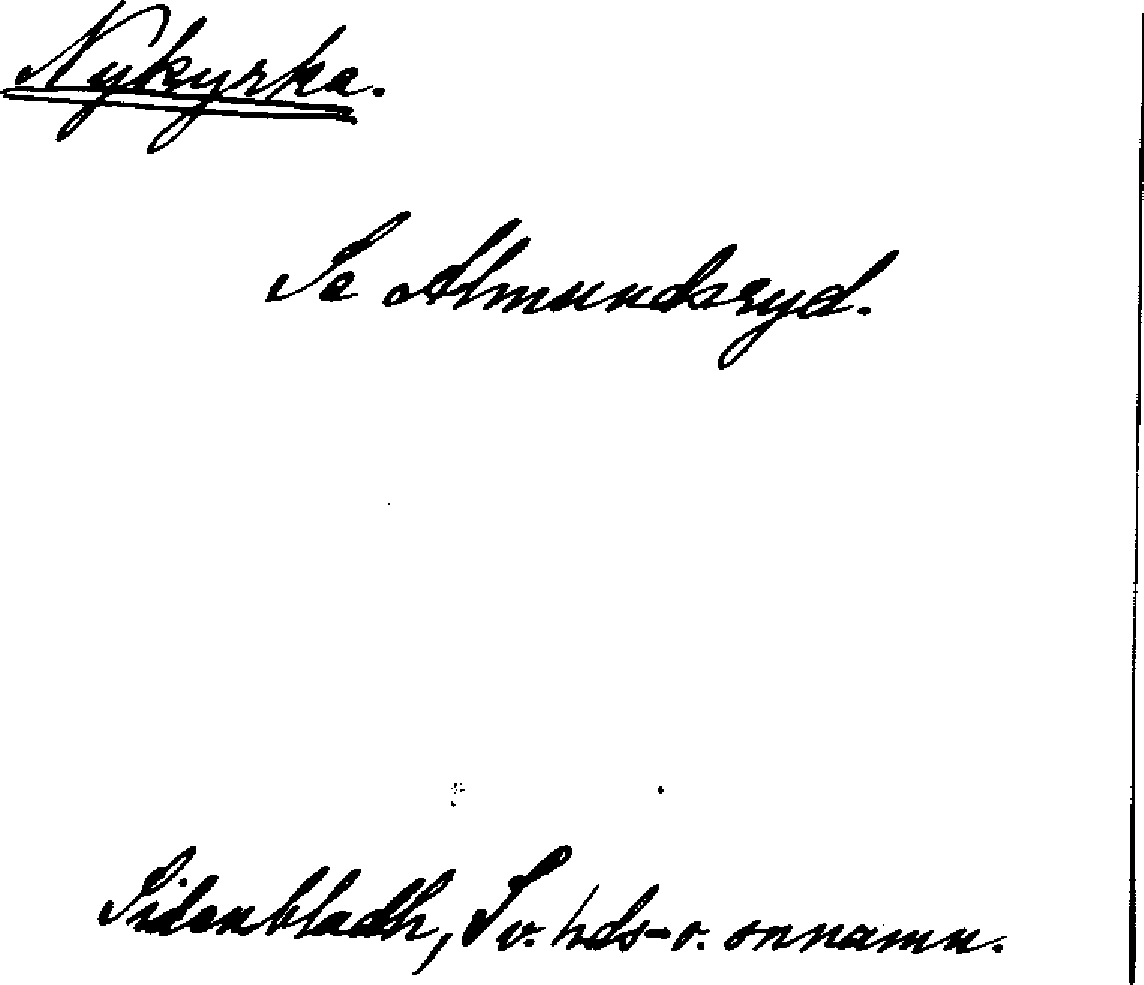 Nykyrka.
Se Almundsryd.
Sidenbladh, Sv. hds- o. snnamn.